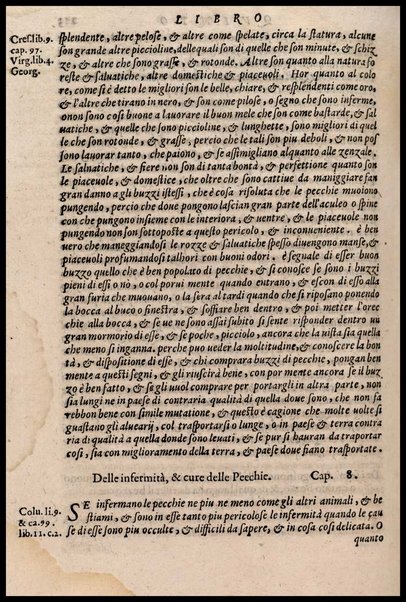 LIBRO
Cres. lib. 9.
cap. 97.
Virg. lib. 4.
Georg.
splendente, altre pelose, & altre come spelate, circa la statura, alcune
son grande altre piccioline, delle quali son di quelle che son minute, & schiz
ze, & altre che sono grasse, & rotonde. Altre son quanto alla natura fo
reste & saluatiche, altre domestiche & piaceuoli. Hor quanto al colo
re, come si è detto le migliori son le belle, chiare, & resplendenti come oro,
& l'altre che tirano in nero, & son come pilose, o segno che sono inferme,
o non sono cosi buone a lauorare il buon mele che son come bastarde, & sal
uatiche, & quelle che sono piccioline, & lunghette, sono migliori di quel
le che son rotonde, & grasse, percio che le tali son piu deboli, & non pos
sono lauorar tanto, che paiono, & se assimigliano alquanto alle zenzale.
Le saluatiche, & fiere non son di tanta bontà, & perfettione quanto son
le piaceuole, & domestice, che oltre che sono cattiue da maniggiare fan
gran danno a gli buzzi istessi, che è cosa risoluta che le pecchie muoiono
pungendo, percio che doue pongono lascian gran parte dell'aculeo o spine
con che pungono insieme con le interiora, & uentre, & le piaceuole non
pungendo non son sottoposte a questo pericolo, & inconueniente. è ben
uero che maneggiandosi le rozze & saluatiche spesso diuengono manse, &
piaceuoli profumandosi talhori con buoni odori. è segnale di esser buon
buzzo quello che è ben popolato di pecchie, & si conosce se sono i buzzi
pieni di essi o nò, o col porui mente quando entrano, & escon di esso alla
gran furia che muouano, o la sera al tardi quando che si riposano ponendo
la bocca al buco o finestra, & soffiare ben dentro, & poi metter l'orec
chie alla bocca, & se ue ne sono assai subito si sente risponder dentro un
gran mormorio di esse, & se poche, picciolo, ancora che la uista sia quella
che meno si inganna. perche puo ueder la moltitudine, & conoscere la bon
tà, & dispositione di esse, & chi comprara buzzi di pecchie, pongan ben
mente a questi segni, & gli riuscirà bene, con por mente ancora se il buz
zo è ben fatto, & se gli uuol comprare per portargli in altra parte, non
sia lungi ne in paese di contraria qualità di quella doue sono, che non fa
rebbon bene con simile mutatione, & questo è cagione che molte uolte si
guastano gli alueari, col trasportarsi o lunge, o in paese & terra contra
ria di qualità a quella donde sono leuati, & se pur si hauran da traportar
cosi, sia con miglioramento della terra, & paese doue fiano trasportate.
Delle infermità, & cure delle Pecchie. Cap. 8.
Colu. li. 9.
& ca. 99.
lib. 11. c. 2.
SE infermano le pecchie ne piu ne meno come gli altri animali, & be
stiami, & sono in esse tanto piu pericolose le infermità quando le cau
se di esse sono piu occulte, & difficili da sapere, & in cosa cosi delicata. O
quanto